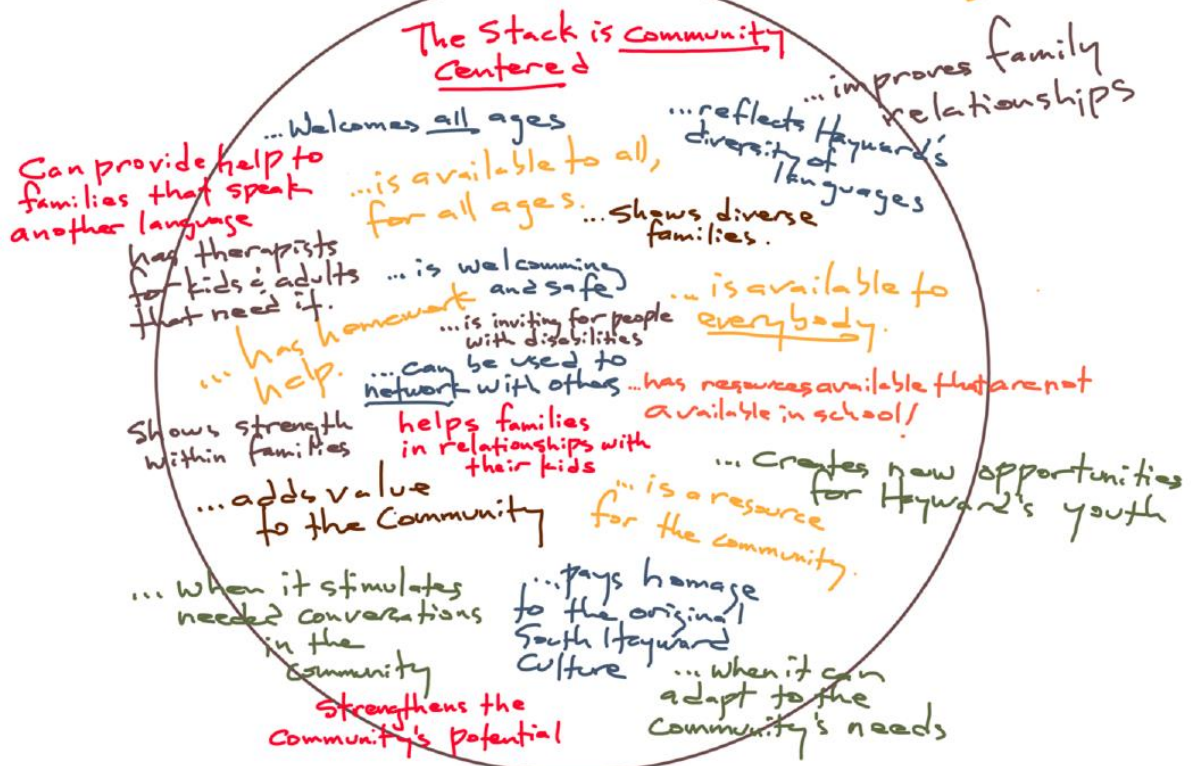 The Stack is Community
Centered
...improves family
relationships
...Welcomes all ages
...reflects Hayward's
diversity of
languages
Can provide help to
families that speak
another language
...is available to all,
for all ages.
...Shows diverse
families.
has therapists
for kids & adults
that need it.
...is welcomming
and safe
...is available to
everybody.
...has homework
help.
...is inviting for people
with disabilities
...can be used to
network with others
...has resources available that are not
available in school!
Shows strength
within families
helps families
in relationships with
their kids
...Creates new opportunities
for Hayward's youth
...adds value
to the Community
...is a resource
for the community.
...when it stimulates
needed conversations
in the
community
...pays homage
to the original
South Hayward
Culture
...when it can
adapt to the
Community's needs
Strengthens the
Community's potential